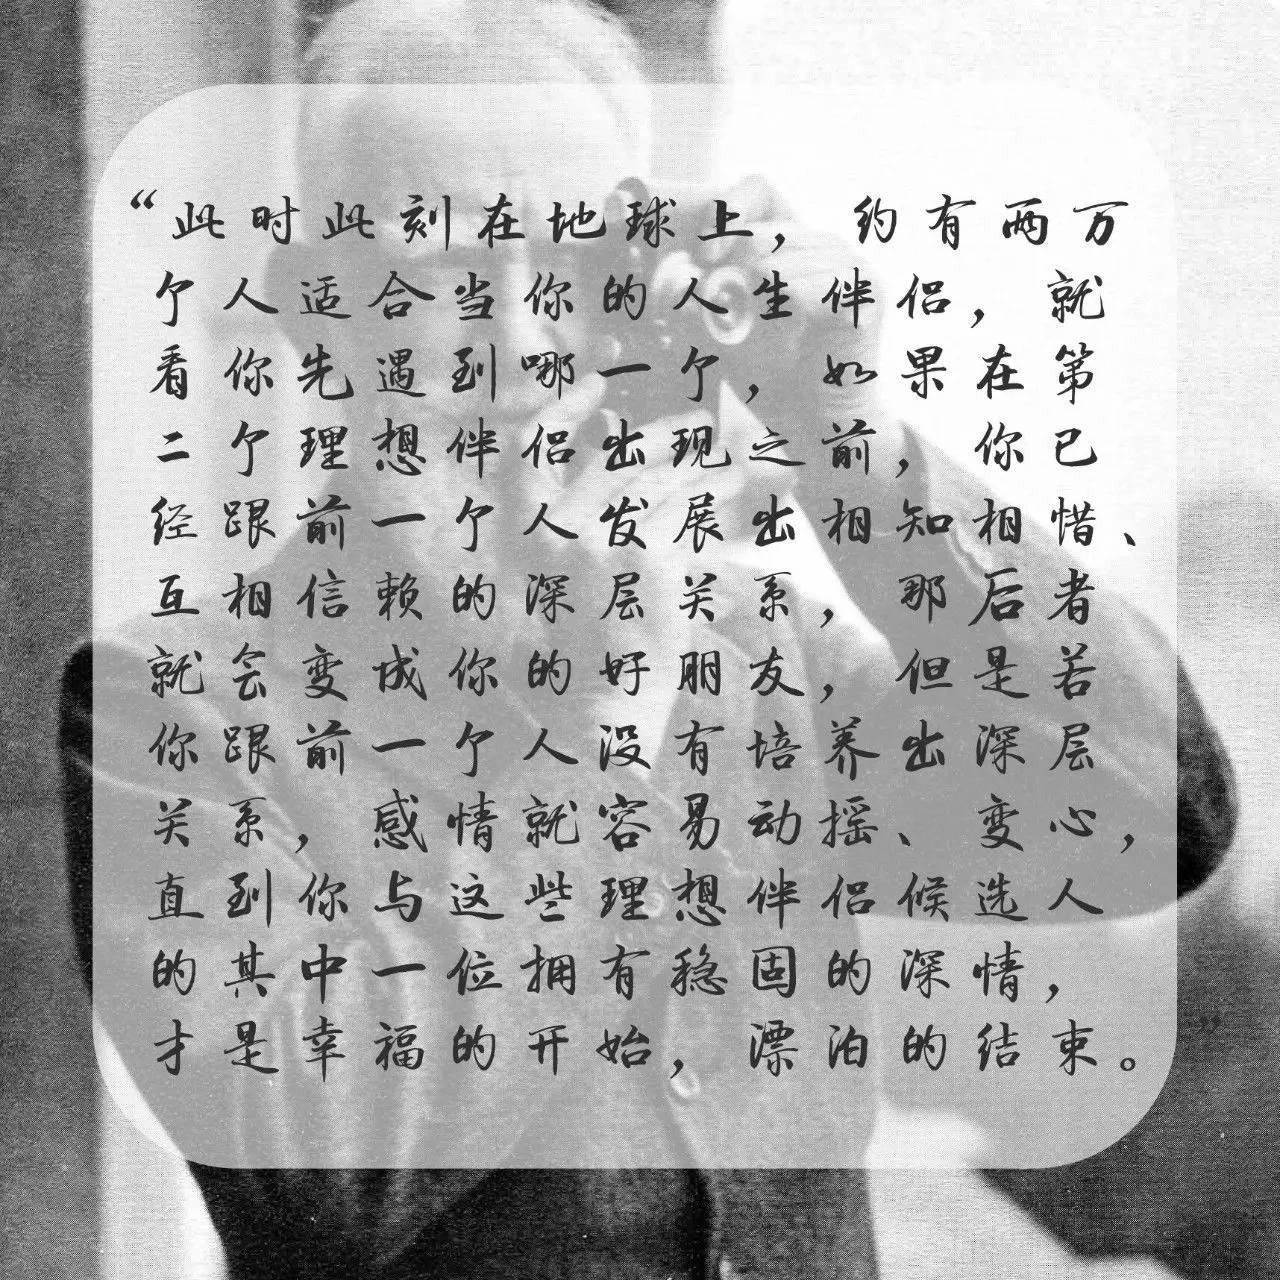 “此时此刻在地球上，约有两万
个人适合当你的人生伴侣，就
看你先遇到哪一个，如果在第
二个理想伴侣出现之前，你已
经跟前一个人发展出相知相惜、
互相信赖的深层关系，那后者
就会变成你的好朋友，但是若
你跟前一个人没有培养出深层
关系，感情就容易动摇、变心，
直到你与这些理想伴侣候选人
的其中一位拥有稳固的深情，
才是幸福的开始，漂泊的结束。”